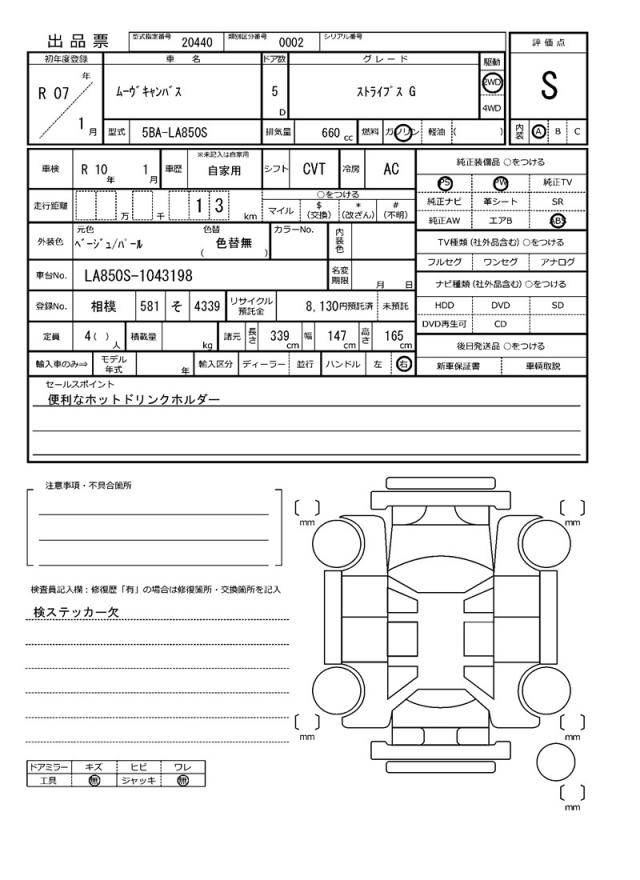 出品票 型式指定番号 20440 類別区分番号 0002 シリアル番号
評価点
S
内装 A B C
初年度登録 車名 ドア数 グレード 駆動
R 07 年 1 月 ムーヴキャンバス 5 D ストライプス G 2WD 4WD
型式 5BA-LA850S 排気量 660 cc 燃料 ガソリン 軽油 ( )
車検 R 10 年 1 月 車歴 ※未記入は自家用 自家用 シフト CVT 冷房 AC
走行距離 万 千 1 3 km
○をつける
マイル $(交換) *(改ざん) #(不明)
外装色 元色 ベージュ/パール 色替 色替無 ( ) カラーNo. 内装色
車台No. LA850S-1043198 名変期限 月 日
登録No. 相模 581 そ 4339 リサイクル預託金 8,130円預託済 未預託
定員 4( ) 人 積載量 kg 諸元 長さ 339 cm 幅 147 cm 高さ 165 cm
輸入車のみ⇒ モデル年式 年 輸入区分 ディーラー 並行 ハンドル 左 右
純正装備品 ○をつける
PS PW 純正TV
純正ナビ 革シート SR
純正AW エアB ABS
TV種類(社外品含む) ○をつける
フルセグ ワンセグ アナログ
ナビ種類(社外品含む) ○をつける
HDD DVD SD
DVD再生可 CD
後日発送品 ○をつける
新車保証書 車輌取説
セールスポイント
便利なホットドリンクホルダー
注意事項・不具合箇所
検査員記入欄：修復歴「有」の場合は修復箇所・交換箇所を記入
検ステッカー欠
ドアミラー キズ ヒビ ワレ
工具 無 ジャッキ 無
mm
mm
mm
mm
mm